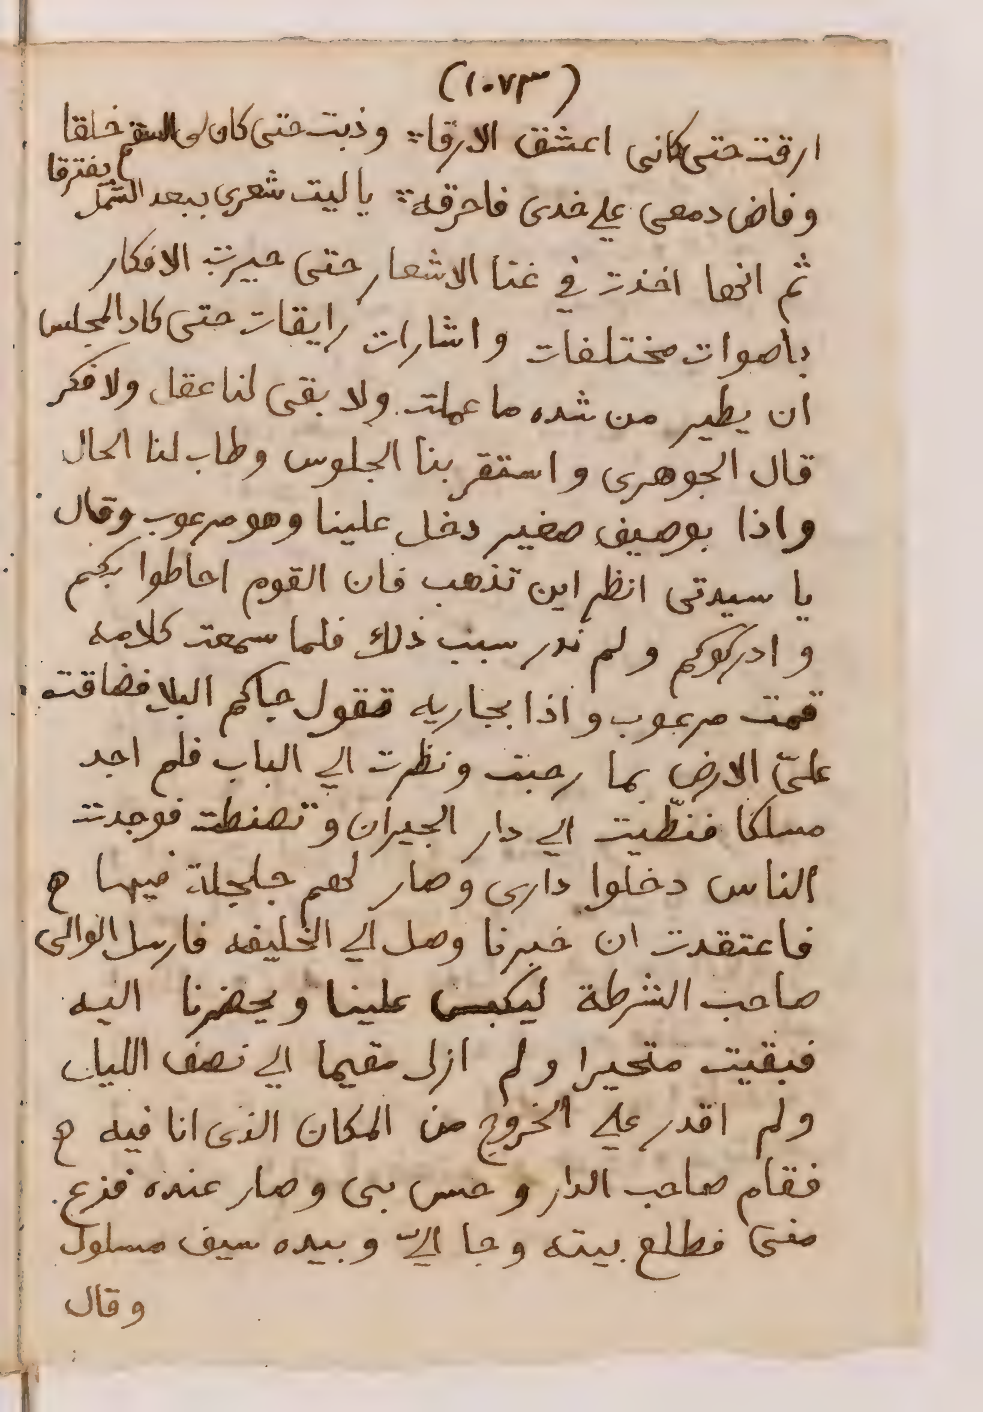 (١٠٧٣)
ارقت حتى كانى اعشق الارقا ؞ وذبت حتى كان لى السقم خلقا
وفاض دمعى على خدى فاحرقه ؞ ياليت شعرى ببعد الشمل يفترقا
ثم انها اخذت في غنا الاشعار حتى حيرت الافكار
باصوات مختلفات واشارات رايقات حتى كاد المجلس
ان يطير من شده ما عملت ولا بقى لنا عقل ولا فكر
قال الجوهرى واستقر بنا الجلوس وطاب لنا الحال
واذا بوصيف صغير دخل علينا وهو مرعوب وقال
يا سيدتى انظر اين تذهب فان القوم احاطوا بكم
وادركوكم ولم ندر سبب ذلك فلما سمعت كلامه
قمت مرعوب واذا بجاريه تقول جاكم البلا فضاقت
علىّ الارض بما رحبت ونظرت الي الباب فلم اجد
مسلكا فنطّيت الي دار الجيران وتصنطت فوجدت
الناس دخلوا دارى وصار لهم جلجلة فيها ه
فاعتقدت ان خبرنا وصل الي الخليفه فارسل الوالى
صاحب الشرطة ليكبس علينا ويحضرنا اليه
فبقيت متحيرا ولم ازل مقيما الي نصف الليل
ولم اقدر علي الخروج من المكان الذى انا فيه ه
فقام صاحب الدار وحس بى وصار عنده فزع
منى فطلع بيته وجا اليّ وبيده سيف مسلول
وقال